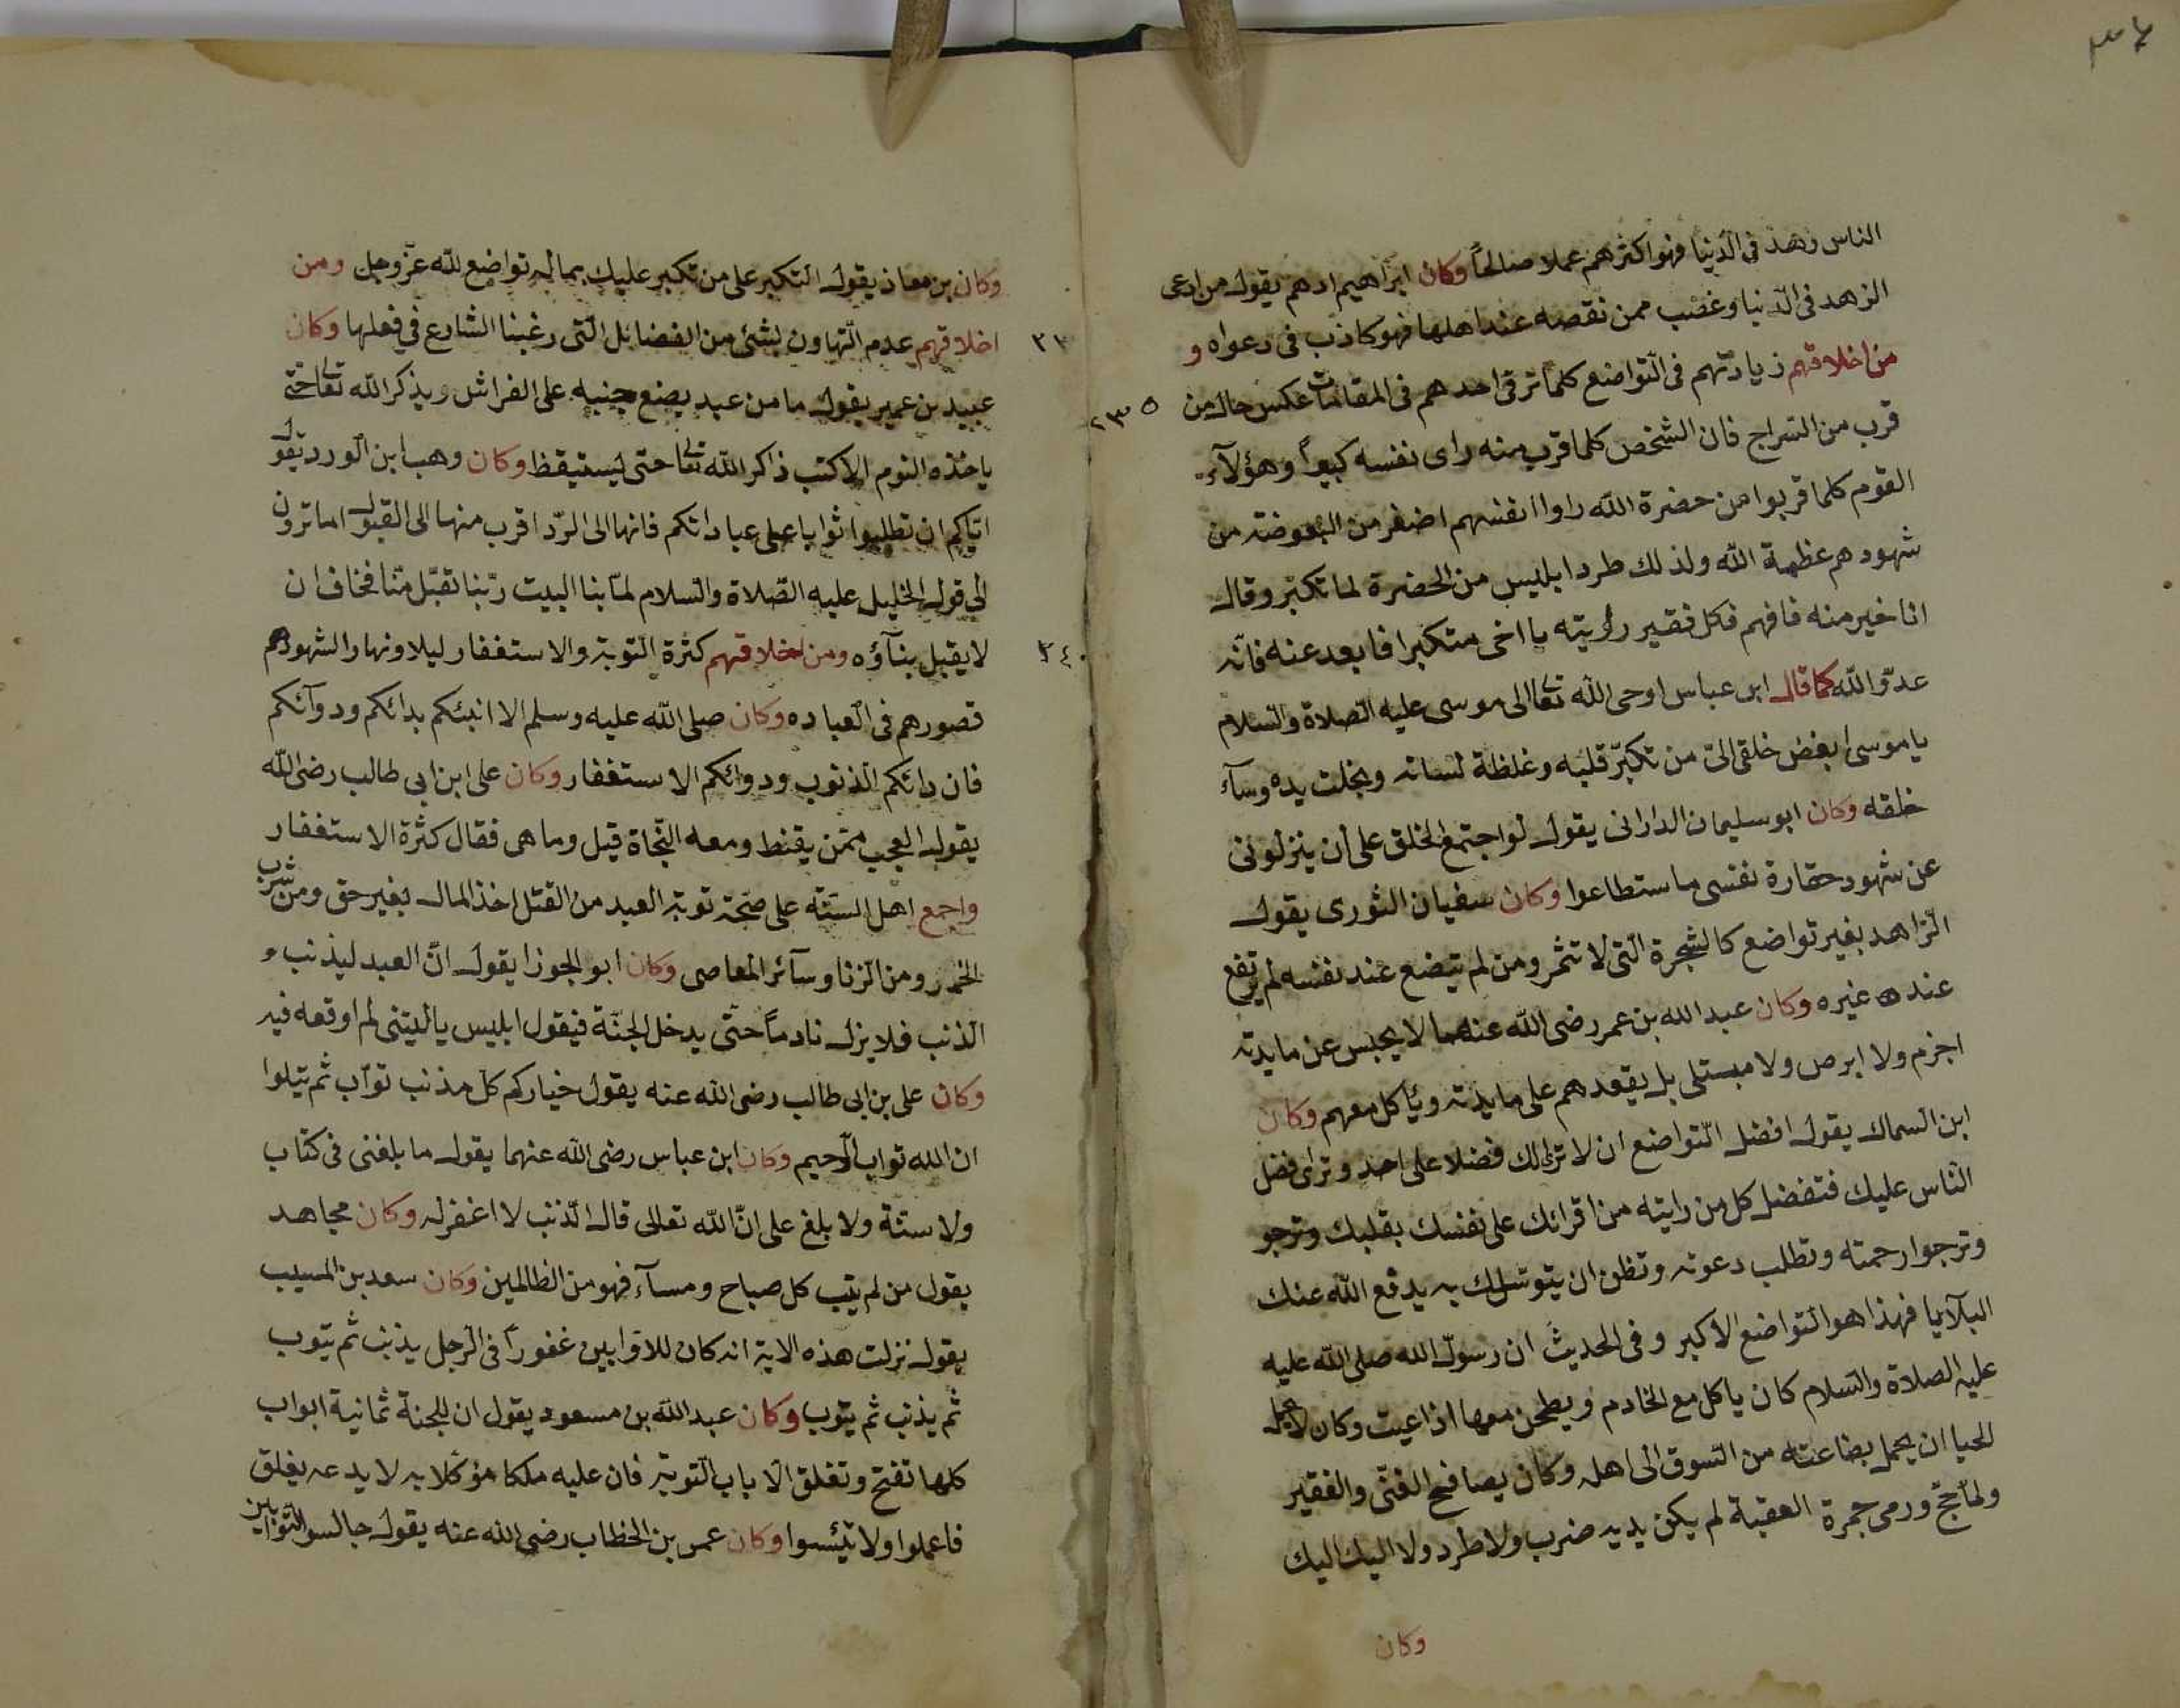 الناس زهد فى الدّنيا فهو اكثرهم عملا صالحاً وكان ابراهيم ادهم يقول من ادعى
الزهد فى الدّنيا وغضب ممن نقصه عند اهلها فهو كاذب فى دعواه و
من اخلاقهم زيادتهم فى التّواضع كلما ترقى احدهم فى المقامات عكس حال من
٢٣٥
قرب من السّراج فان الشخص كلما قرب منه راى نفسه كبيراً وهؤلاء
القوم كلما قربوا من حضرة الله راوا انفسهم اصغر من البعوضة من
شهودهم عظمة الله ولذلك طرد ابليس من الحضرة لما تكبّر وقال
انا خير منه فافهم فكل فقير رأيته يا اخى متكبرا فابعد عنه فانّه
عدوّ الله كما قال ابن عباس اوحى الله تعالى الى موسى عليه الصلاة والسلام
يا موسى ابغض خلقى الىّ من تكبّر قلبه وغلظة لسانه وبخلت يده وسآء
خلقه وكان ابو سليمان الدارانى يقول لو اجتمع الخلق على ان ينزلونى
عن شهود حقارة نفسى ما ستطاعوا وكان سفيان الثورى يقول
الزاهد بغير تواضع كالشجرة الّتى لا تثمر ومن لم يتضع عند نفسه لم يرتفع
عنده غيره وكان عبد الله بن عمر رضى الله عنهما لا يحبس عن مايدته
اجزم ولا ابرص ولا مبتلى بل يقعدهم على مايدته ويأكل معهم وكان
ابن السماك يقول افضل التّواضع ان لا ترى لك فضلا على احد وترى فضل
الناس عليك فتفضل كل من رايته من اقرانك على نفسك بقلبك وترجو
وترجوا رحمته وتطلب دعوته وتظن ان يتوسلك به يدفع الله عنك
البلآيا فهذا هو التواضع الاكبر وفى الحديث ان رسول الله صلى الله عليه
عليه الصلاة والسلام كان ياكل مع الخادم ويطحن معها اذا عيت وكان
الحيا ان يحمل بضاعته من السوق الى اهله وكان يصافح الغنى والفقير
ولمّا حجّ ورمى جمرة العقبة لم يكن يديه ضرب ولا طرد ولا اليك اليك
وكان
وكان بن معاذ يقول التكبر على من تكبر عليك بماله تواضع لله عزّ وجل ومن
اخلاقهم عدم التّهاون بشئ من الفضائل الّتى رغبنا الشارع فى فعلها وكان
عبيد بن عمير يقول ما من عبد يضع جنبه على الفراش ويذكر الله تعالى حتى
ياخذه النوم الا كتب ذاكر الله تعالى حتى ليستيقظ وكان وهب ابن الورد يقول
اياكم ان تطلبوا ثوابا على عباداتكم فانها الى الرّد اقرب منها الى القبول اما ترون
الى قول الخليل عليه الصّلاة والسلام لمّا بنا البيت ربّنا تقبّل منّا فخاف ان
لا يقبل بنآؤه ومن اخلاقهم كثرة التّوبة والاستغفار ليلا ونهارا لشهودهم
٢٤٠
قصورهم فى العباده وكان صلى الله عليه وسلم الا انبئكم بدائكم ودوآئكم
فان دائكم الذنوب ودوائكم الاستغفار وكان على ابن ابى طالب رضى الله
يقول العجب ممّن يقنط ومعه النّجاة قيل وما هى فقال كثرة الاستغفار
واجمع اهل السنّة على صحّة توبة العبد من القتل اخذ المال بغير حق ومن شرب
الخمر ومن الزنا وسآئر المعاصى وكان ابو الجوزا يقول انّ العبد ليذنب
الذنب فلا يزل نادماً حتّى يدخل الجنّة فيقول ابليس ياليتنى لم اوقعه فيه
وكان على بن ابى طالب رضى الله عنه يقول خياركم كل مذنب تواب ثم يتلوا
ان الله تواب الرّحيم وكان ابن عباس رضى الله عنهما يقول ما بلغنى فى كتاب
ولا سنّة ولا بلغ على انّ الله تعالى قال الذنب لا اغفر له وكان مجاهد
يقول من لم يتب كل صباح ومسآء فهو من الظالمين وكان سعد بن المسيب
يقول نزلت هذه الاية انه كان للاوابين غفوراً فى الرجل يذنب ثم يتوب
ثم يذنب ثم يتوب وكان عبد الله بن مسعود يقول ان للجنة ثمانية ابواب
كلها تفتح وتغلق الا باب التّوبة فان عليه ملكا مؤكلا به لا يدعه يغلق
فاعملوا ولا تيئسوا وكان عمر بن الخطاب رضى الله عنه يقول جالسوا التّوابين